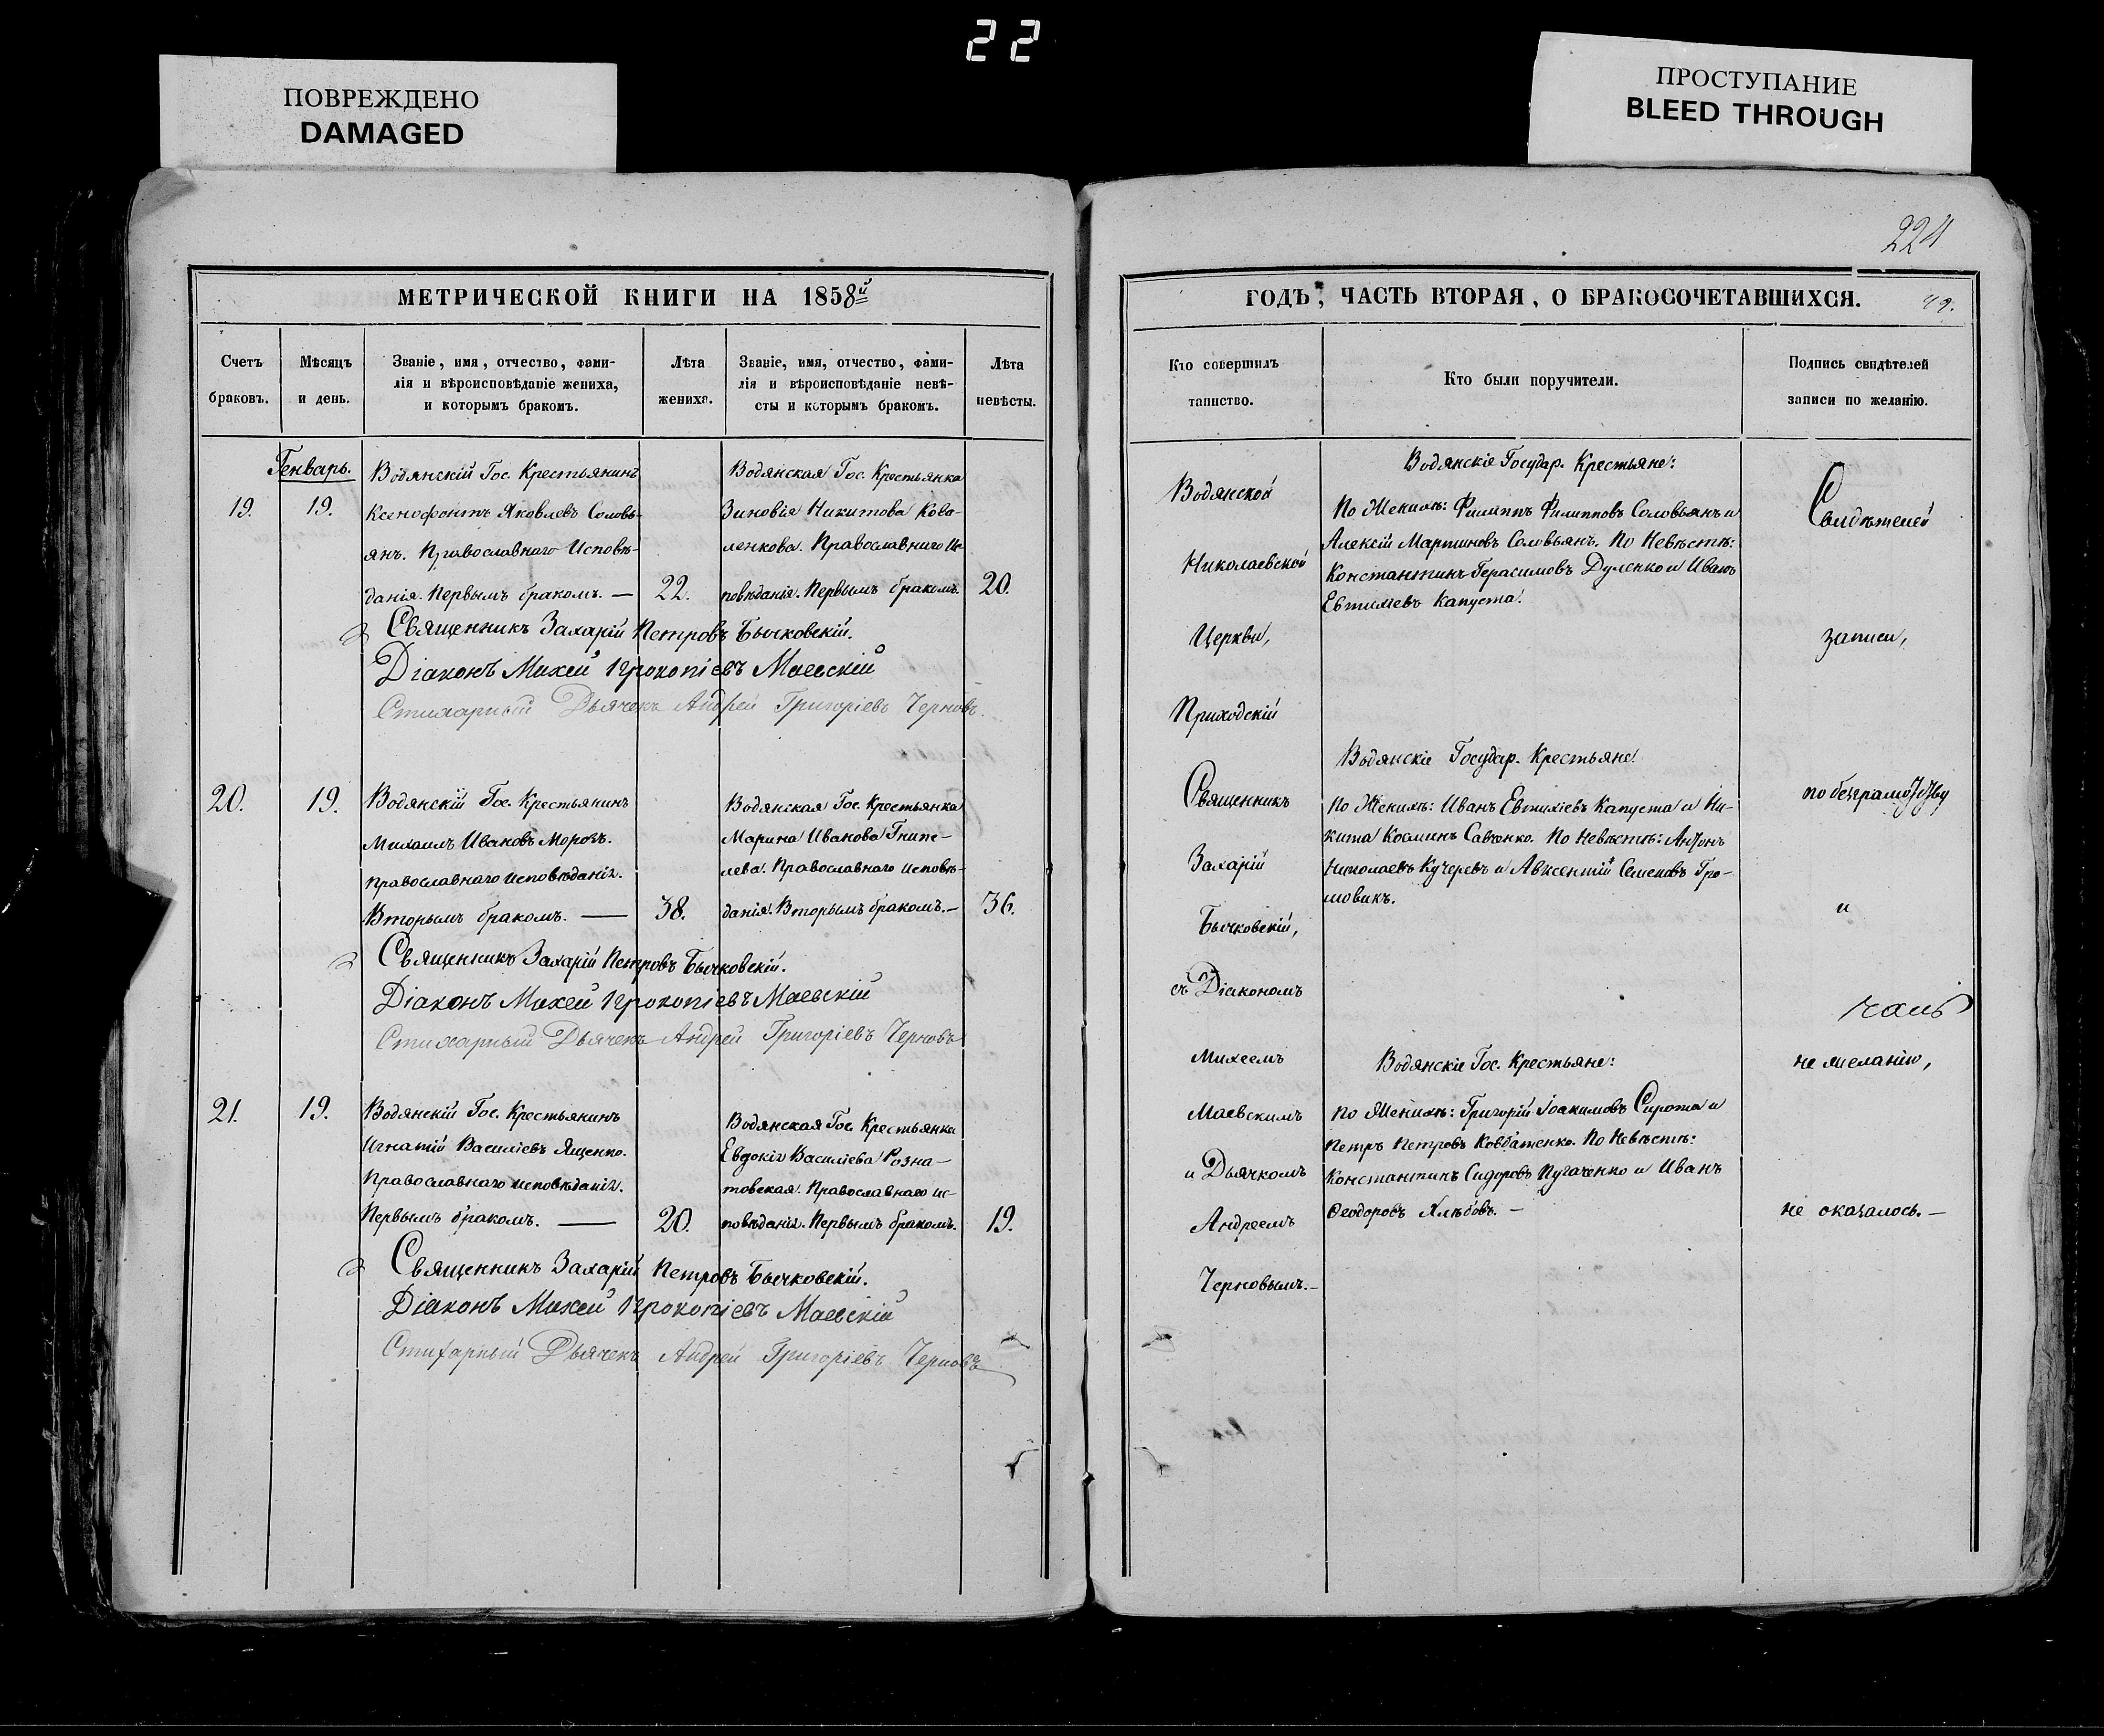 22
ПОВРЕЖДЕНО
DAMAGED
ПРОСТУПАНИЕ
BLEED THROUGH
МЕТРИЧЕСКОЙ КНИГИ НА 1858й
Счетъ браковъ.
Мѣсяцъ и день.
Званіе, имя, отчество, фами-
лія и вѣроисповѣданіе жениха,
и которымъ бракомъ.
Лѣта жениха.
Званіе, имя, отчество, фами-
лія и вѣроисповѣданіе невѣ-
сты и которымъ бракомъ.
Лѣта невѣсты.
Генварь.
19.
19.
Водянскій Гос. Крестьянинъ
Ксенофонтъ Яковлевъ Соловь-
янъ. Православнаго Исповѣ-
данія. Первымъ бракомъ. —
22.
Водянская Гос. Крестьянка
Зиновія Никитова Кова-
ленкова. Православнаго Ис-
повѣданія. Первымъ бракомъ.
20.
Священникъ Захарій Петровъ Бычковскій.
Діаконъ Михей Прокопіевъ Маевскій
Стихарный Дьячекъ Андрей Григоріевъ Черновъ.
20.
19.
Водянскій Гос. Крестьянинъ
Михаилъ Ивановъ Морозъ.
Православнаго исповѣданія.
Вторымъ бракомъ. —
38.
Водянская Гос. Крестьянка
Марина Иванова Гнипе-
лева. Православнаго исповѣ-
данія. Вторымъ бракомъ. —
36.
Священникъ Захарій Петровъ Бычковскій.
Діаконъ Михей Прокопіевъ Маевскій
Стихарный Дьячекъ Андрей Григоріевъ Черновъ
21.
19.
Водянскій Гос. Крестьянинъ
Игнатій Василіевъ Ященко.
Православнаго исповѣданія.
Первымъ бракомъ. —
20.
Водянская Гос. Крестьянка
Евдокія Василіева Розна-
товская. Православнаго ис-
повѣданія. Первымъ бракомъ.
19.
Священникъ Захарій Петровъ Бычковскій.
Діаконъ Михей Прокопіевъ Маевскій
Стихарный Дьячекъ Андрей Григоріевъ Черновъ
224
ГОДЪ, ЧАСТЬ ВТОРАЯ, О БРАКОСОЧЕТАВШИХСЯ.
Кто совершилъ таинство.
Кто были поручители.
Подпись свидѣтелей
записи по желанію.
Водянской
Николаевской
Церкви,
Приходскій
Священникъ
Захарій
Бычковскій,
съ Діакономъ
Михеемъ
Маевскимъ
и Дьячкомъ
Андреемъ
Черновымъ. —
Водянскіе Государ. Крестьяне:
По Женихѣ: Филиппъ Филипповъ Соловьянъ и
Алексій Мартиновъ Соловьянъ. По Невѣстѣ:
Константинъ Герасимовъ Дуленко и Иванъ
Евтихіевъ Капуста.
Водянскіе Государ. Крестьяне:
По Женихѣ: Иванъ Евтихіевъ Капуста и Ни-
кита Косминъ Савченко. По Невѣстѣ: Антонъ
Николаевъ Кучеревъ и Авксентій Семеновъ Гро-
мовикъ.
Водянскіе Гос. Крестьяне:
По Женихѣ: Григорій Іоакимовъ Сирота и
Петръ Петровъ Ковбатенко. По Невѣстѣ:
Константинъ Сидоровъ Пугаченко и Иванъ
Ѳеодоровъ Хлѣбовъ. —
Свидѣтелей
записи,
по безграмотству
и
не желанію,
не оказалось. —